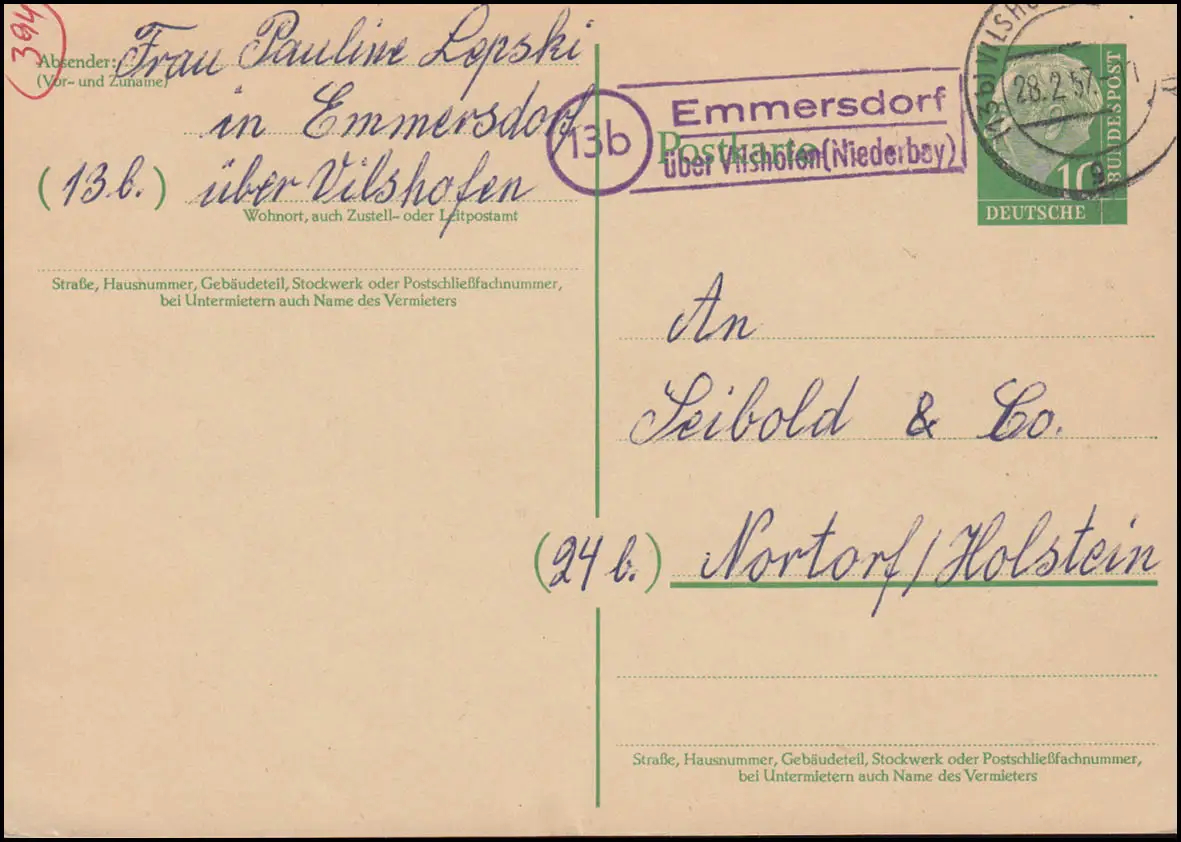 394
Absender: Frau Pauline Lepski
(Vor- und Zuname)
in Emmersdorf
(13b.) über Vilshofen
Wohnort, auch Zustell- oder Leitpostamt
Straße, Hausnummer, Gebäudeteil, Stockwerk oder Postschließfachnummer,
bei Untermietern auch Name des Vermieters
13b
Emmersdorf
über Vilshofen (Niederbay)
Postkarte
(13b) VILSHO
28.2.57
g
10
DEUTSCHE
BUNDESPOST
An
Seibold & Co.
(24b.) Nortorf/Holstein
Straße, Hausnummer, Gebäudeteil, Stockwerk oder Postschließfachnummer,
bei Untermietern auch Name des Vermieters